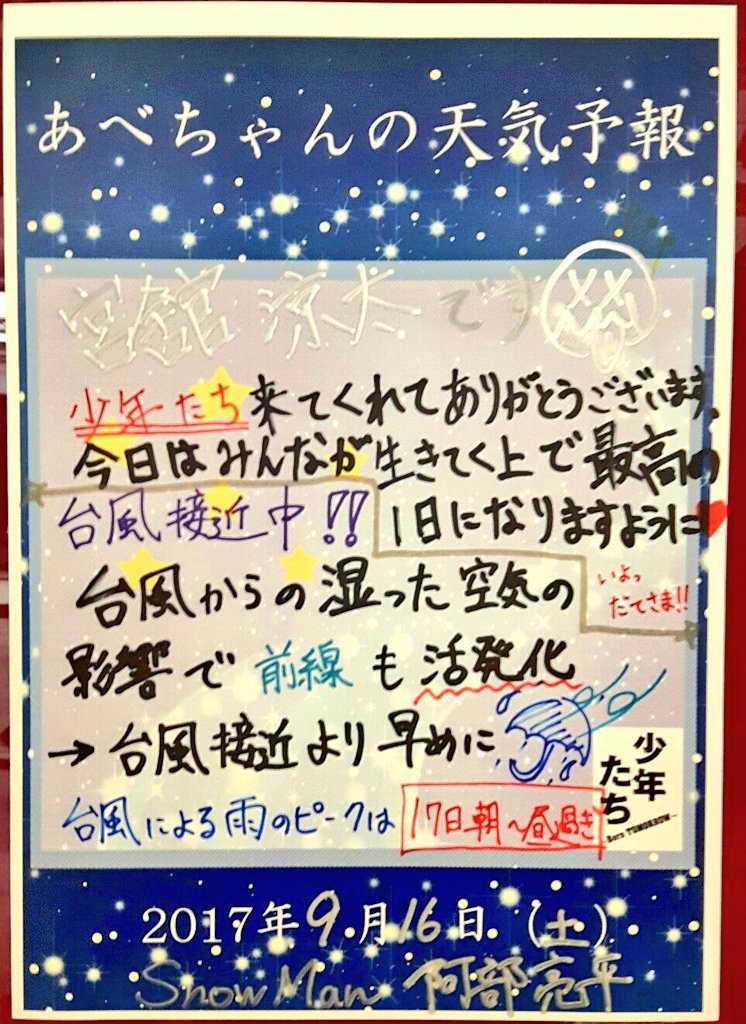 あべちゃんの天気予報
宮舘 涼太です
少年たち来てくれてありがとうございます。
今日はみんなが生きてく上で最高の
1日になりますように♥
いよっ
だてさま!!
台風接近中!!
台風からの湿った空気の
影響で 前線 も 活発化
→ 台風接近より早めに
台風による雨のピークは 17日朝~昼過ぎ
少年
たち
-Born TOMORROW-
2017年9月16日(土)
Snow Man 阿部亮平